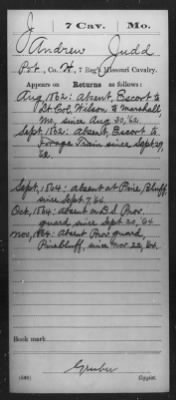 J 7 Cav. Mo.
Andrew Judd
Pvt., Co. H, 7 Reg't Missouri Cavalry.
Appears on Returns as follows:
Aug, 1862: absent, Escort to
Lt. Col. Wilson to Marshall,
Mo, since Aug 30, '62.
Sept, 1862: Absent, Escort to
Forage Train since Sept 29,
'62.
Sept, 1864: absent at Pine Bluff,
since Sept 7, '64
Oct, 1864: absent on Prov.
guard, since Sept 20, '64
Nov, 1864: Absent Prov guard,
Pine Bluff, since Nov 22, '64.
Book mark
Gruber
(546) Copyist.